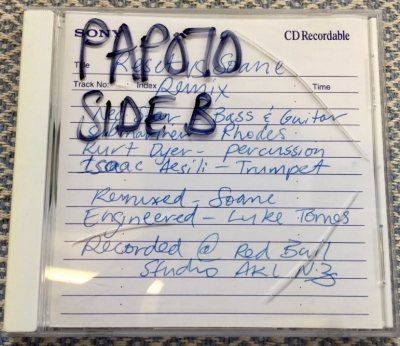 SONY
CD Recordable
PAP070
SIDE B
Title
Reset
Soane
Track No:
Index
Time
Remix
Bass & Guitar
Rhodes
Kurt Dyer - percussion
Isaac Aesili - Trumpet
Remixed - Soane
Engineered - Luke Tomes
Recorded @ Red Bull
Studio AKL NZ